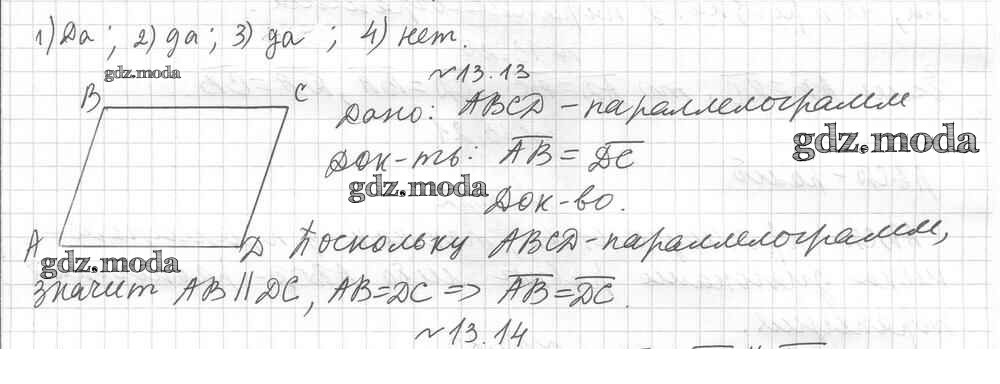 1) Да; 2) да; 3) да; 4) нет.
gdz.moda
№13.13
B C
Дано: ABCD - параллелограмм
gdz.moda
Док-ть: A̅B̅ = D̅C̅
gdz.moda
Док-во.
A D Поскольку ABCD-параллелограмм,
gdz.moda
значит AB || DC, AB=DC => A̅B̅=D̅C̅.
№13.14